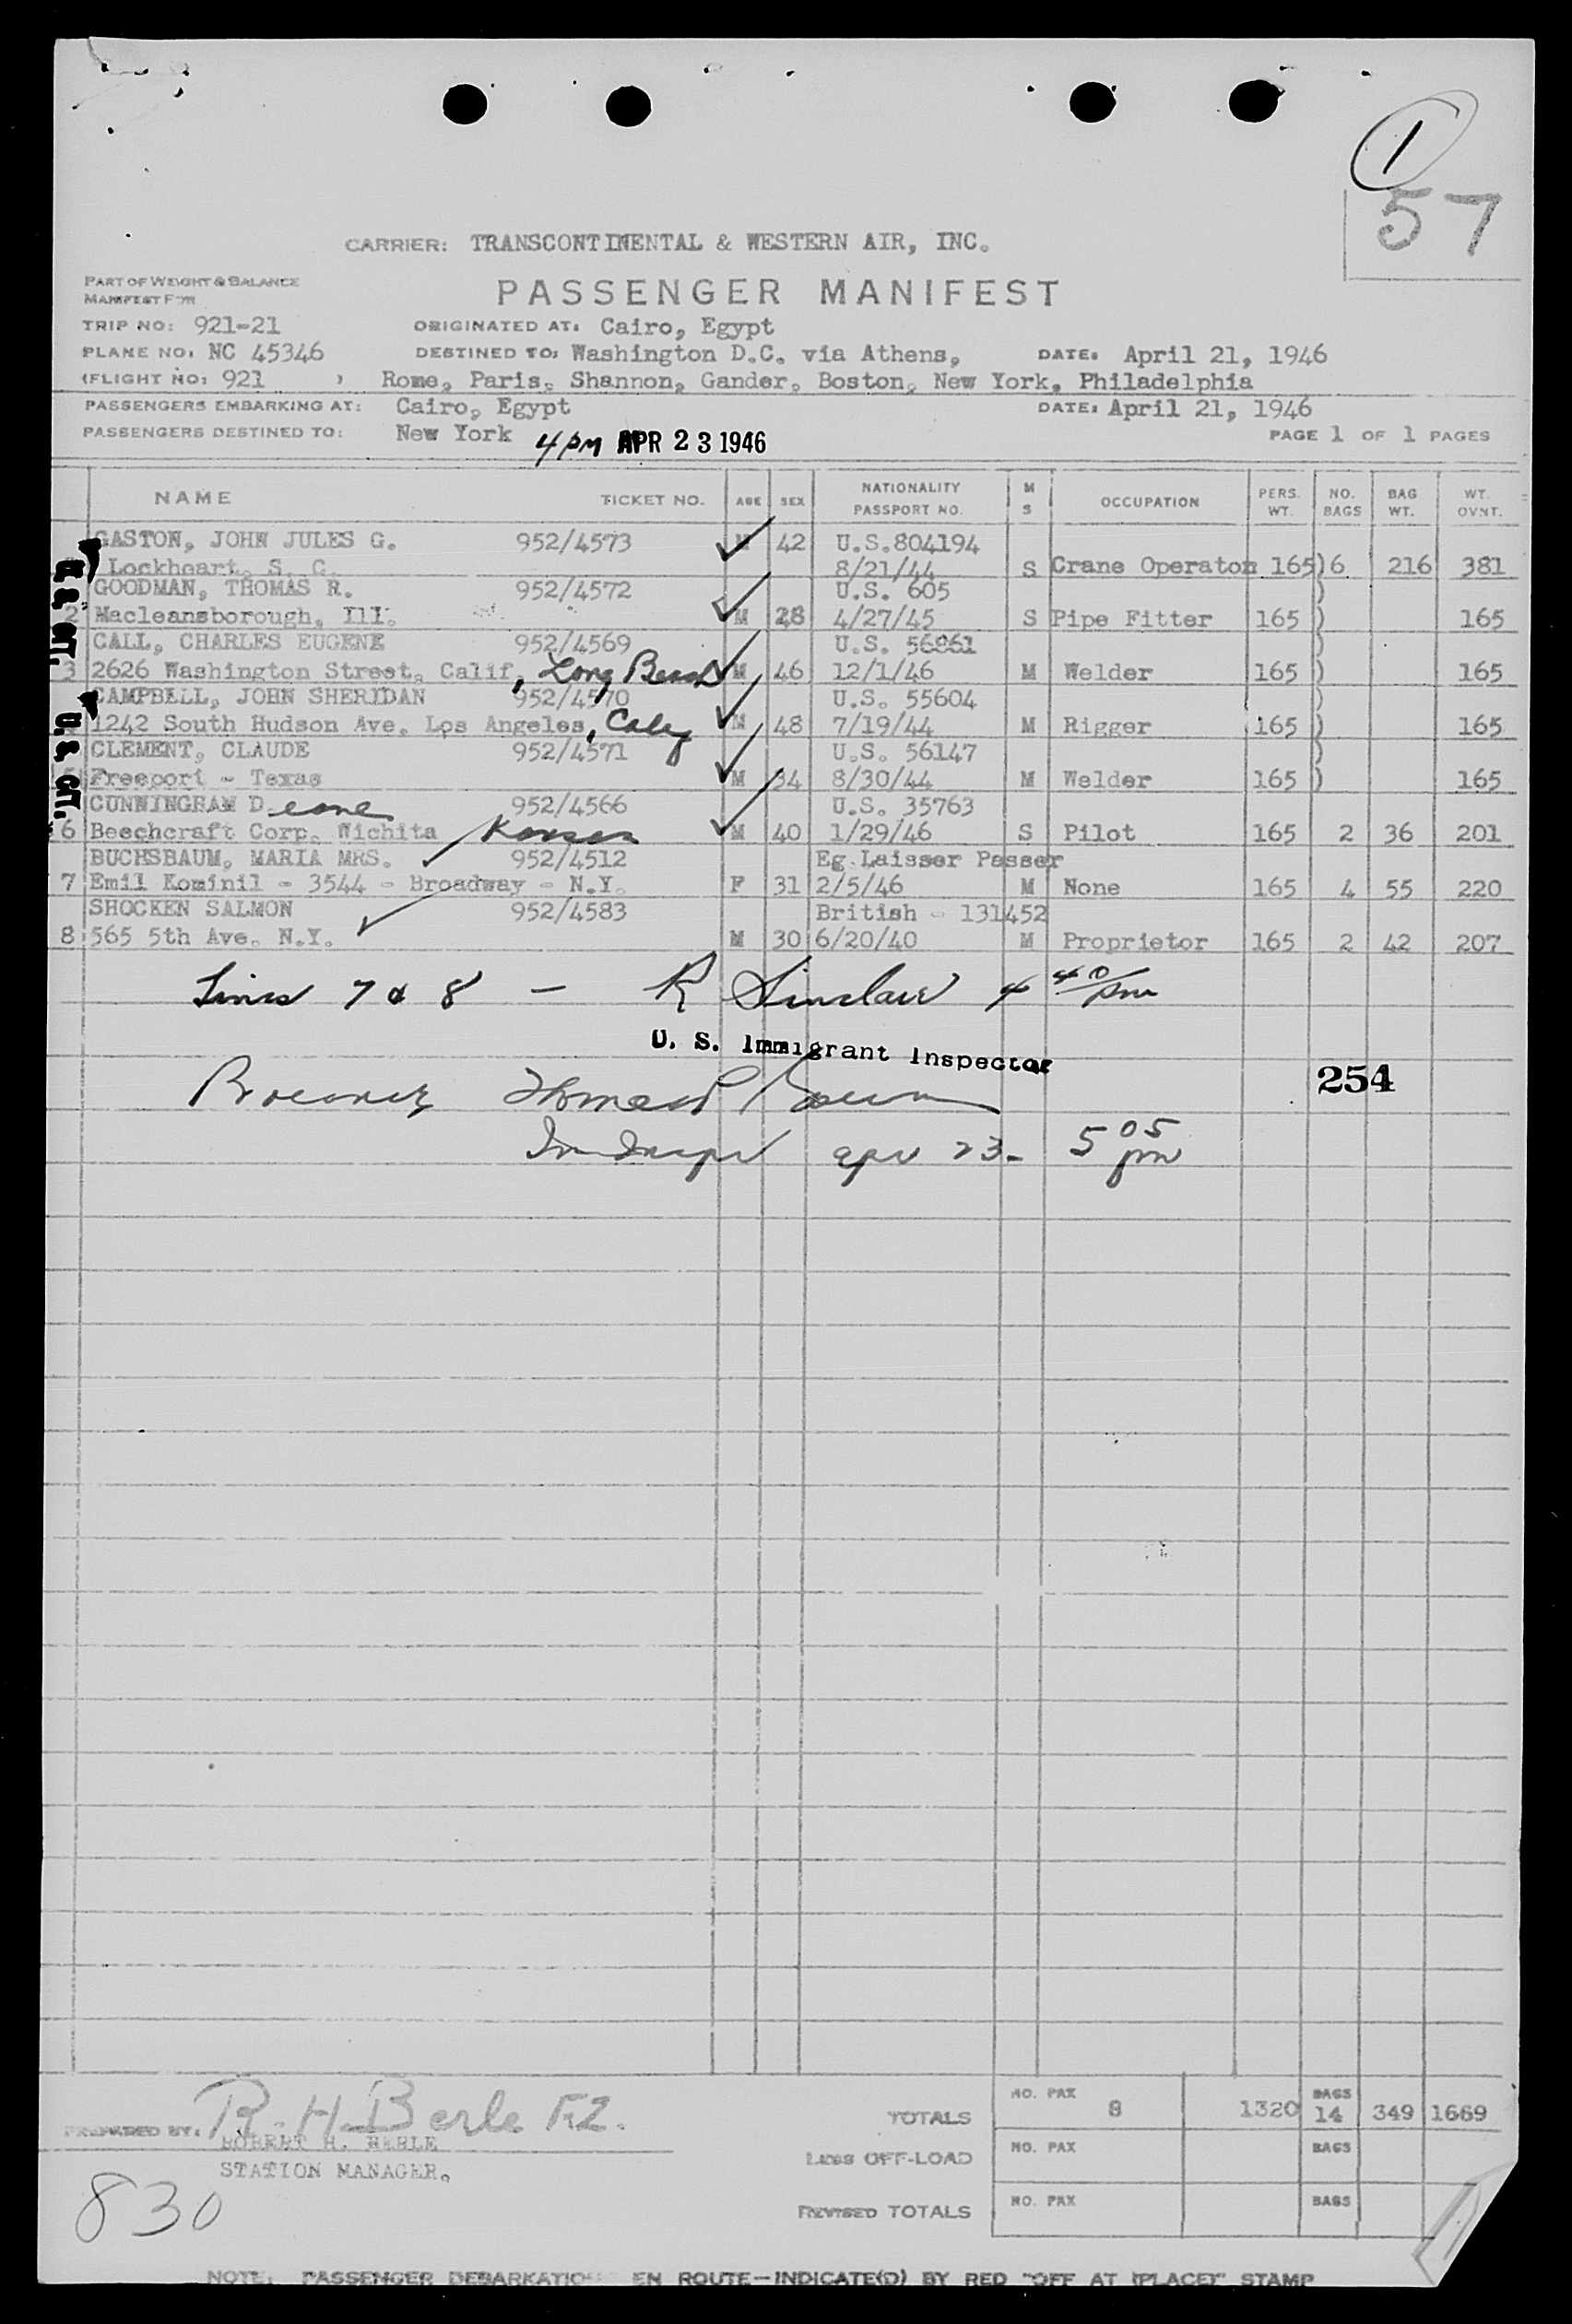 1
57
CARRIER: TRANSCONTINENTAL & WESTERN AIR, INC.
PART OF WEIGHT & BALANCE
MANIFEST FOR
PASSENGER MANIFEST
TRIP NO: 921-21 ORIGINATED AT: Cairo, Egypt
PLANE NO: NC 45346 DESTINED TO: Washington D.C. via Athens, DATE: April 21, 1946
(FLIGHT NO: 921 ) Rome, Paris, Shannon, Gander, Boston, New York, Philadelphia
PASSENGERS EMBARKING AT: Cairo, Egypt DATE: April 21, 1946
PASSENGERS DESTINED TO: New York 4 PM APR 23 1946 PAGE 1 OF 1 PAGES
NAME TICKET NO. AGE SEX NATIONALITY PASSPORT NO. M S OCCUPATION PERS. WT. NO. BAGS BAG WT. WT. OVNT.
GASTON, JOHN JULES G. 952/4573 M 42 U.S.804194
Lockheart, S. C. 8/21/44 S Crane Operator 165)6 216 381
GOODMAN, THOMAS R. 952/4572 U.S. 605 )
2 Macleansborough, Ill. M 28 4/27/45 S Pipe Fitter 165 ) 165
CALL, CHARLES EUGENE 952/4569 U.S. 56861 )
3 2626 Washington Street, Calif, Long Beach M 46 12/1/46 M Welder 165 ) 165
CAMPBELL, JOHN SHERIDAN 952/4570 U.S. 55604 )
1242 South Hudson Ave. Los Angeles, Calif M 48 7/19/44 M Rigger 165 ) 165
CLEMENT, CLAUDE 952/4571 U.S. 56147 )
5 Freeport - Texas M 34 8/30/44 M Welder 165 ) 165
CUNNINGHAM Deane 952/4566 U.S. 35763
6 Beechcraft Corp. Wichita Kansas M 40 1/29/46 S Pilot 165 2 36 201
BUCHSBAUM, MARIA MRS. 952/4512 Eg Laisser Passer
7 Emil Kominil - 3544 - Broadway - N.Y. F 31 2/5/46 M None 165 4 55 220
SHOCKEN SALMON 952/4583 British - 131452
8 565 5th Ave. N.Y. M 30 6/20/40 M Proprietor 165 2 42 207
U. S. CIT.
U. S. CIT.
Lines 7 & 8 - R Sinclair 4 40/pm
U. S. Immigrant Inspector
254
Thomas
Im Inspr apr 23- 5 05 pm
TOTALS NO. PAX 8 1320 BAGS 14 349 1669
PREPARED BY: R. H. Berle FZ.
ROBERT H. BERLE
STATION MANAGER.
LESS OFF-LOAD NO. PAX BAGS
REVISED TOTALS NO. PAX BAGS
830
NOTE: PASSENGER DEBARKATION EN ROUTE—INDICATE(D) BY RED "OFF AT (PLACE)" STAMP